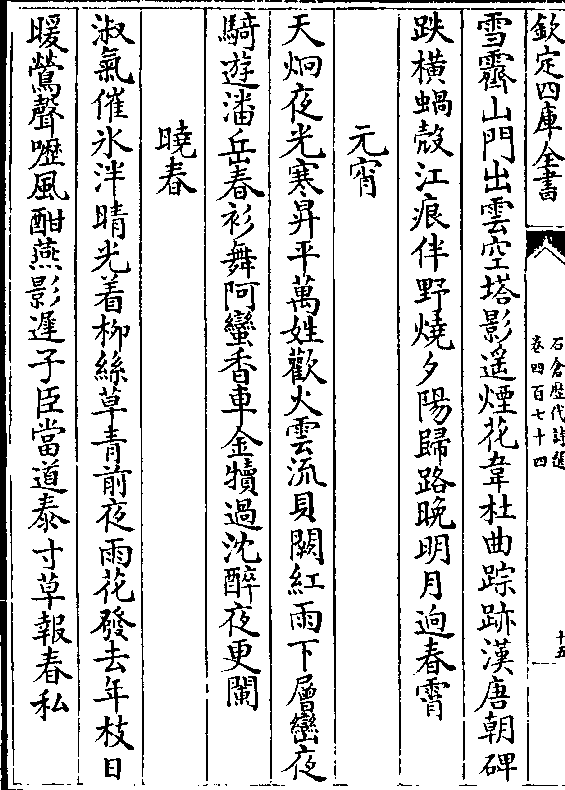 欽定四庫全書
石倉歷代詩選
卷四百七十四
十五
雪霽山門出雲空塔影遥煙花韋杜曲踪跡漢唐朝碑
趺橫蝸殻江痕伴野燒夕陽歸路晚明月逈春霄
元宵
天炯夜光寒昇平萬姓歡火雲流貝闕紅雨下層巒夜
騎遊潘岳春衫舞阿蠻香車金犢過沈醉夜更闌
曉春
淑氣催氷泮晴光着柳絲草青前夜雨花發去年枝日
暖鶯聲嚦風酣燕影遲子臣當道泰寸草報春私